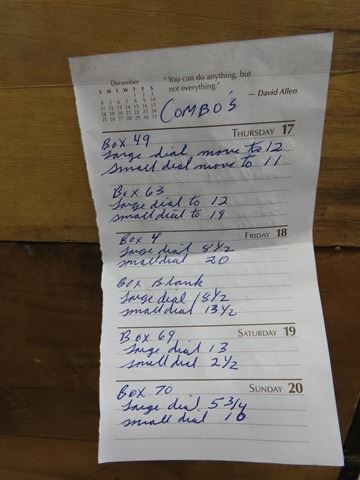 December
S M T W T F S
"You can do anything, but
not everything."
— David Allen
COMBO'S
THURSDAY 17
Box 49
Large dial move to 12
Small dial move to 11
Box 63
Large dial to 12
small dial to 19
FRIDAY 18
Box 4
Large dial 8 1/2
small dial 20
Box Blank
Large dial 18 1/2
small dial 13 1/2
SATURDAY 19
Box 69
Large dial 13
small dial 2 1/2
SUNDAY 20
Box 70
Large dial 5 3/4
small dial 10